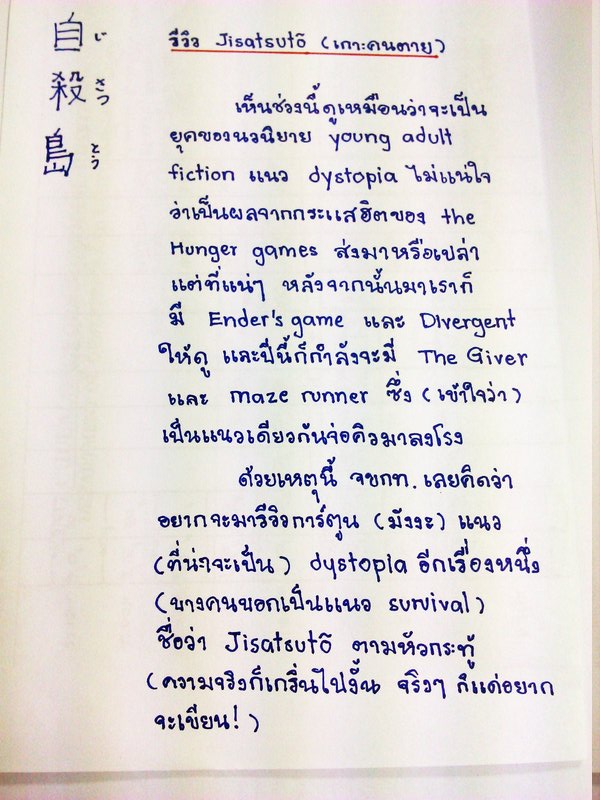 自殺島
じさつとう
รีวิว Jisatsutō (เกาะคนตาย)
เห็นช่วงนี้ดูเหมือนว่าจะเป็น
ยุคของนวนิยาย young adult
fiction แนว dystopia ไม่แน่ใจ
ว่าเป็นผลจากกระแสฮิตของ the
Hunger games ส่งมาหรือเปล่า
แต่ที่แน่ๆ หลังจากนั้นมาเราก็
มี Ender's game และ Divergent
ให้ดู และปีนี้ก็กำลังจะมี The Giver
และ maze runner ซึ่ง (เข้าใจว่า)
เป็นแนวเดียวกันจ่อคิวมาลงโรง
ด้วยเหตุนี้ จขกท. เลยคิดว่า
อยากจะมารีวิวการ์ตูน (มังงะ) แนว
(ที่น่าจะเป็น) dystopia อีกเรื่องหนึ่ง
(บางคนบอกเป็นแนว survival)
ชื่อว่า Jisatsutō ตามหัวกระทู้
(ความจริงก็เกริ่นไปงั้น จริงๆ ก็แค่อยาก
จะเขียน!)